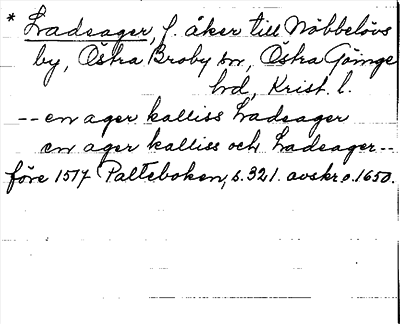 * Ladsager, f. åker till Nöbbelövs
by, Östra Broby sn, Östra Göinge
hd, Krist. l.
-- en ager kalliss Ladsager
en ager kalliss och Ladsager --
före 1517 Palteboken, s. 321. avskr. o. 1650.